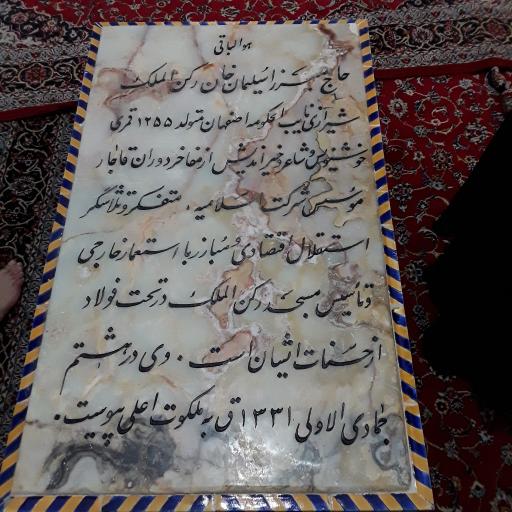 هو الباقی
حاج میرزا سلیمان خان رکن الملک
شیرازی نایب الحکومه اصفهان متولد ۱۲۵۵ قمری
خوشنویس و شاعر و خیراندیش از مفاخر دوران قاجار
موسس شرکت اسلامیه، متفکر و تلاشگر
استقلال اقتصادی و مبارز با استعمار خارجی
و تأسیس مسجد رکن الملک در تخت فولاد
از حسنات ایشان است. وی در هشتم
جمادی الاولی ۱۳۳۱ ق به ملکوت اعلی پیوست.